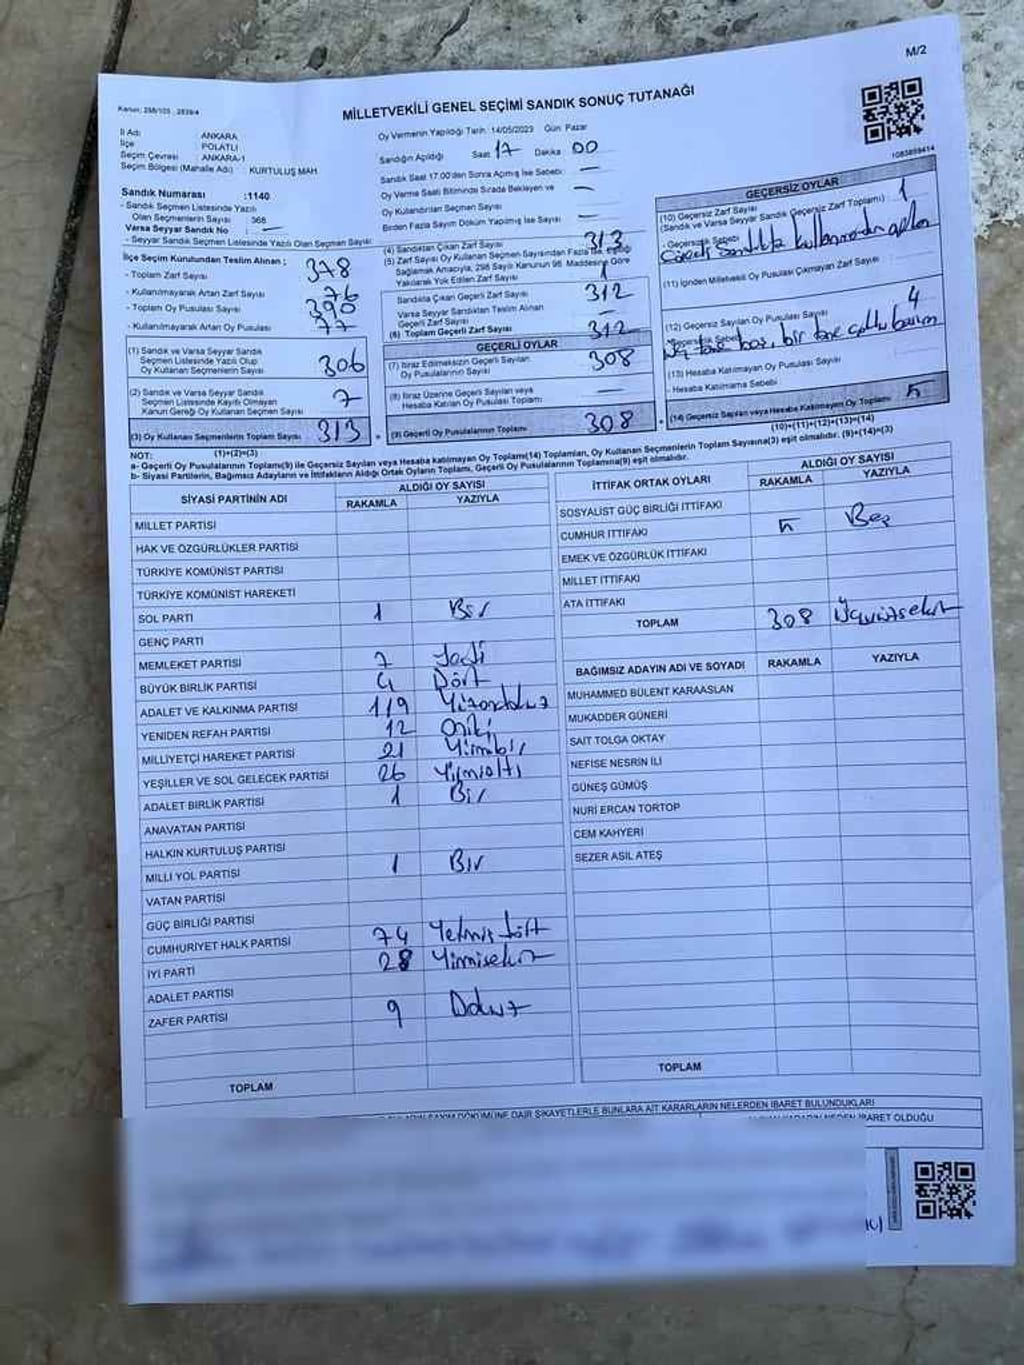 M/2
Kanun: 298/105 , 2839/4
MİLLETVEKİLİ GENEL SEÇİMİ SANDIK SONUÇ TUTANAĞI
1083859414
İl Adı : ANKARA
İlçe : POLATLI
Seçim Çevresi : ANKARA-1
Seçim Bölgesi (Mahalle Adı) : KURTULUŞ MAH.
Sandık Numarası :1140
- Sandık Seçmen Listesinde Yazılı
Olan Seçmenlerin Sayısı : 368
Varsa Seyyar Sandık No : —
- Seyyar Sandık Seçmen Listesinde Yazılı Olan Seçmen Sayısı:
İlçe Seçim Kurulundan Teslim Alınan ;
- Toplam Zarf Sayısı : 378
- Kullanılmayarak Artan Zarf Sayısı : 76
- Toplam Oy Pusulası Sayısı : 390
- Kullanılmayarak Artan Oy Pusulası : 77
(1) Sandık ve Varsa Seyyar Sandık
Seçmen Listesinde Yazılı Olup
Oy Kullanan Seçmenlerin Sayısı : 306
(2) Sandık ve Varsa Seyyar Sandık
Seçmen Listesinde Kayıtlı Olmayan
Kanun Gereği Oy Kullanan Seçmen Sayısı : 7
(3) Oy Kullanan Seçmenlerin Toplam Sayısı : 313
(1)+(2)=(3)
Oy Vermenin Yapıldığı Tarih: 14/05/2023 Gün: Pazar
Sandığın Açıldığı Saat 17 Dakika 00
Sandık Saat 17.00'den Sonra Açılmış İse Sebebi: —
Oy Verme Saati Bitiminde Sırada Bekleyen ve
Oy Kullandırılan Seçmen Sayısı : —
Birden Fazla Sayım Döküm Yapılmış İse Sayısı : —
(4) Sandıktan Çıkan Zarf Sayısı : 313
(5) Zarf Sayısı Oy Kullanan Seçmen Sayısından Fazla ise, Eşitliği
Sağlamak Amacıyla, 298 Sayılı Kanunun 98. Maddesine Göre
Yakılarak Yok Edilen Zarf Sayısı :
Sandıkta Çıkan Geçerli Zarf Sayısı : 312
Varsa Seyyar Sandıktan Teslim Alınan
Geçerli Zarf Sayısı : —
(6) Toplam Geçerli Zarf Sayısı : 312
GEÇERLİ OYLAR
(7) İtiraz Edilmeksizin Geçerli Sayılan
Oy Pusulalarının Sayısı : 308
(8) İtiraz Üzerine Geçerli Sayılan veya
Hesaba Katılan Oy Pusulası Toplamı : —
(9) Geçerli Oy Pusulalarının Toplamı : 308
GEÇERSİZ OYLAR
(10) Geçersiz Zarf Sayısı : 1
(Sandık ve Varsa Seyyar Sandık Geçersiz Zarf Toplamı)
- Geçersizlik Sebebi :
(11) İçinden Milletvekili Oy Pusulası Çıkmayan Zarf Sayısı :
(12) Geçersiz Sayılan Oy Pusulası Sayısı : 4
- Geçersizlik Sebebi : Üç tane boş, bir tane
(13) Hesaba Katılmayan Oy Pusulası Sayısı :
- Hesaba Katılmama Sebebi
(14) Geçersiz Sayılan veya Hesaba Katılmayan Oy Toplamı : 5
(10)+(11)+(12)+(13)=(14)
NOT:
a- Geçerli Oy Pusulalarının Toplamı(9) ile Geçersiz Sayılan veya Hesaba katılmayan Oy Toplamı(14) Toplamları, Oy Kullanan Seçmenlerin Toplam Sayısına(3) eşit olmalıdır. (9)+(14)=(3)
b- Siyasi Partilerin, Bağımsız Adayların ve İttifakların Aldığı Ortak Oyların Toplamı, Geçerli Oy Pusulalarının Toplamına(9) eşit olmalıdır.
SİYASİ PARTİNİN ADI ALDIĞI OY SAYISI
RAKAMLA YAZIYLA
MİLLET PARTİSİ
HAK VE ÖZGÜRLÜKLER PARTİSİ
TÜRKİYE KOMÜNİST PARTİSİ
TÜRKİYE KOMÜNİST HAREKETİ
SOL PARTİ 1 Bir
GENÇ PARTİ
MEMLEKET PARTİSİ 7 Yedi
BÜYÜK BİRLİK PARTİSİ 4 Dört
ADALET VE KALKINMA PARTİSİ 119 Yüzondokuz
YENİDEN REFAH PARTİSİ 12 Oniki
MİLLİYETÇİ HAREKET PARTİSİ 21 Yirmibir
YEŞİLLER VE SOL GELECEK PARTİSİ 26 Yirmialtı
ADALET BİRLİK PARTİSİ 1 Bir
ANAVATAN PARTİSİ
HALKIN KURTULUŞ PARTİSİ
MİLLİ YOL PARTİSİ 1 Bir
VATAN PARTİSİ
GÜÇ BİRLİĞİ PARTİSİ
CUMHURİYET HALK PARTİSİ 74 Yetmiş dört
İYİ PARTİ 28 Yirmisekiz
ADALET PARTİSİ
ZAFER PARTİSİ 9 Dokuz
TOPLAM
İTTİFAK ORTAK OYLARI ALDIĞI OY SAYISI
RAKAMLA YAZIYLA
SOSYALİST GÜÇ BİRLİĞİ İTTİFAKI
CUMHUR İTTİFAKI 5 Beş
EMEK VE ÖZGÜRLÜK İTTİFAKI
MİLLET İTTİFAKI
ATA İTTİFAKI
TOPLAM 308 Üçyüzsekiz
BAĞIMSIZ ADAYIN ADI VE SOYADI RAKAMLA YAZIYLA
MUHAMMED BÜLENT KARAASLAN
MUKADDER GÜNERİ
SAİT TOLGA OKTAY
NEFİSE NESRİN İLİ
GÜNEŞ GÜMÜŞ
NURİ ERCAN TORTOP
CEM KAHYERİ
SEZER ASİL ATEŞ
TOPLAM
SAYIM DÖKÜMÜNE DAİR ŞİKAYETLERLE BUNLARA AİT KARARLARIN NELERDEN İBARET BULUNDUKLARI
KARARIN NEDEN İBARET OLDUĞU